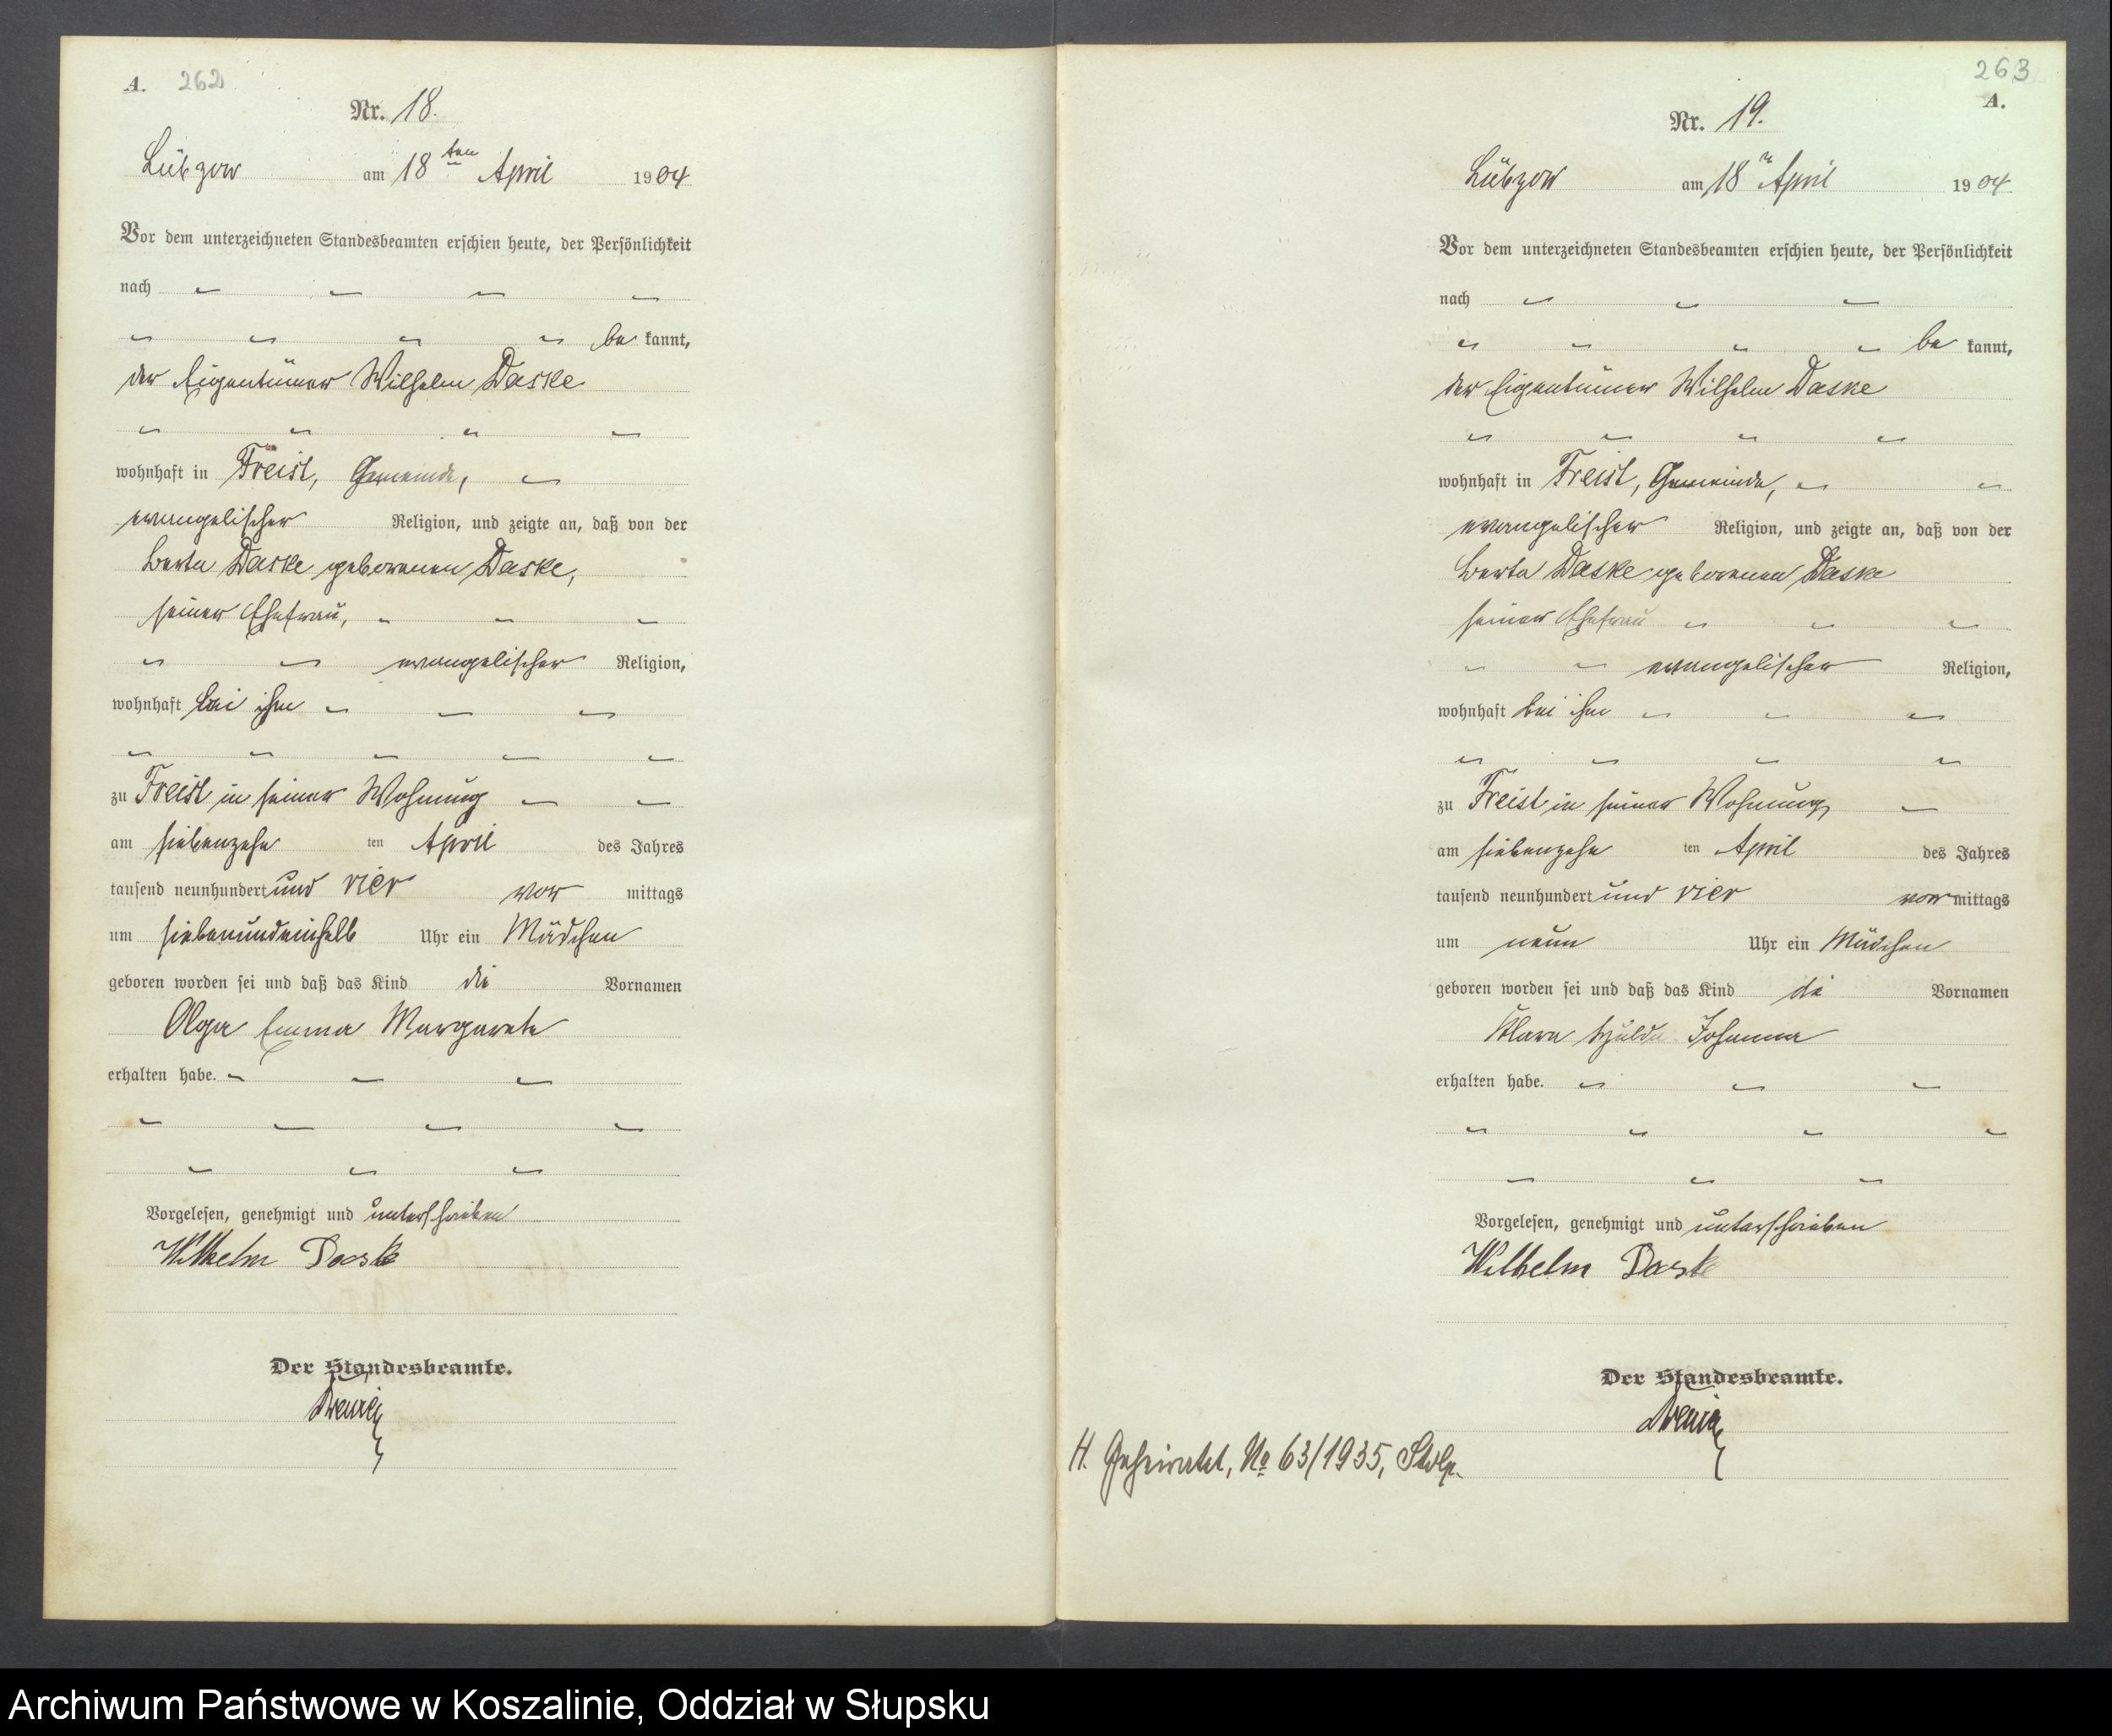 A. 262
Nr. 18.
Lübzow am 18ten April 1904
Vor dem unterzeichneten Standesbeamten erschien heute, der Persönlichkeit
nach
be kannt,
der Eigentümer Wilhelm Daske
wohnhaft in Freist, Gemeinde,
evangelischer Religion, und zeigte an, daß von der
Berta Daske geborenen Daske,
seiner Ehefrau,
evangelischer Religion,
wohnhaft bei ihm
zu Freist in seiner Wohnung
am siebenzehn ten April des Jahres
tausend neunhundert und vier vor mittags
um siebenundeinhalb Uhr ein Mädchen
geboren worden sei und daß das Kind die Vornamen
Olga Emma Margarete
erhalten habe.
Vorgelesen, genehmigt und unterschrieben
Wilhelm Daske
Der Standesbeamte.
263
A.
Nr. 19.
Lübzow am 18n April 1904
Vor dem unterzeichneten Standesbeamten erschien heute, der Persönlichkeit
nach
be kannt,
der Eigentümer Wilhelm Daske
wohnhaft in Freist, Gemeinde,
evangelischer Religion, und zeigte an, daß von der
Berta Daske geborenen Daske
seiner Ehefrau
evangelischer Religion,
wohnhaft bei ihm
zu Freist in seiner Wohnung,
am siebenzehn ten April des Jahres
tausend neunhundert und vier vor mittags
um neun Uhr ein Mädchen
geboren worden sei und daß das Kind die Vornamen
Klara Hulda Johanna
erhalten habe.
Vorgelesen, genehmigt und unterschrieben
Wilhelm Daske
Der Standesbeamte.
H. Geheiratet, No 63/1935, Stolp.
Archiwum Państwowe w Koszalinie, Oddział w Słupsku